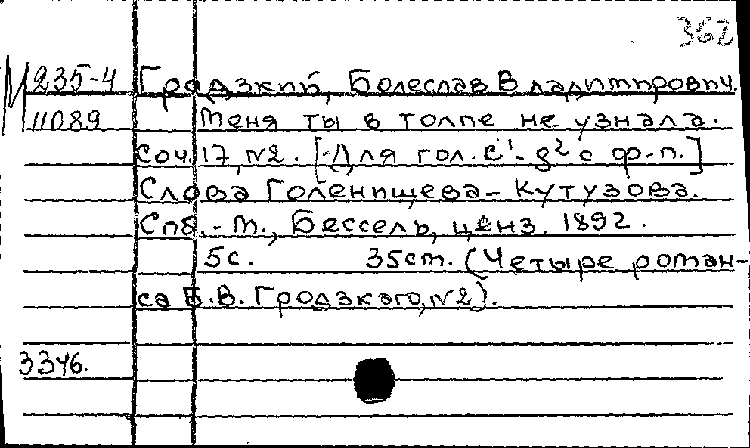 362
М 235-4 Гродзкий, Болеслав Владимирович.
11089 Меня ты в толпе не узнала.
Соч. 17, №2. [Для гол. c¹-g² с ф-п.]
Слова Голенищева-Кутузова.
Спб.-М., Бессель, ценз. 1892.
5с. 35cm. (Четыре роман-
са Б.В. Гродзкого, №2).
3346.